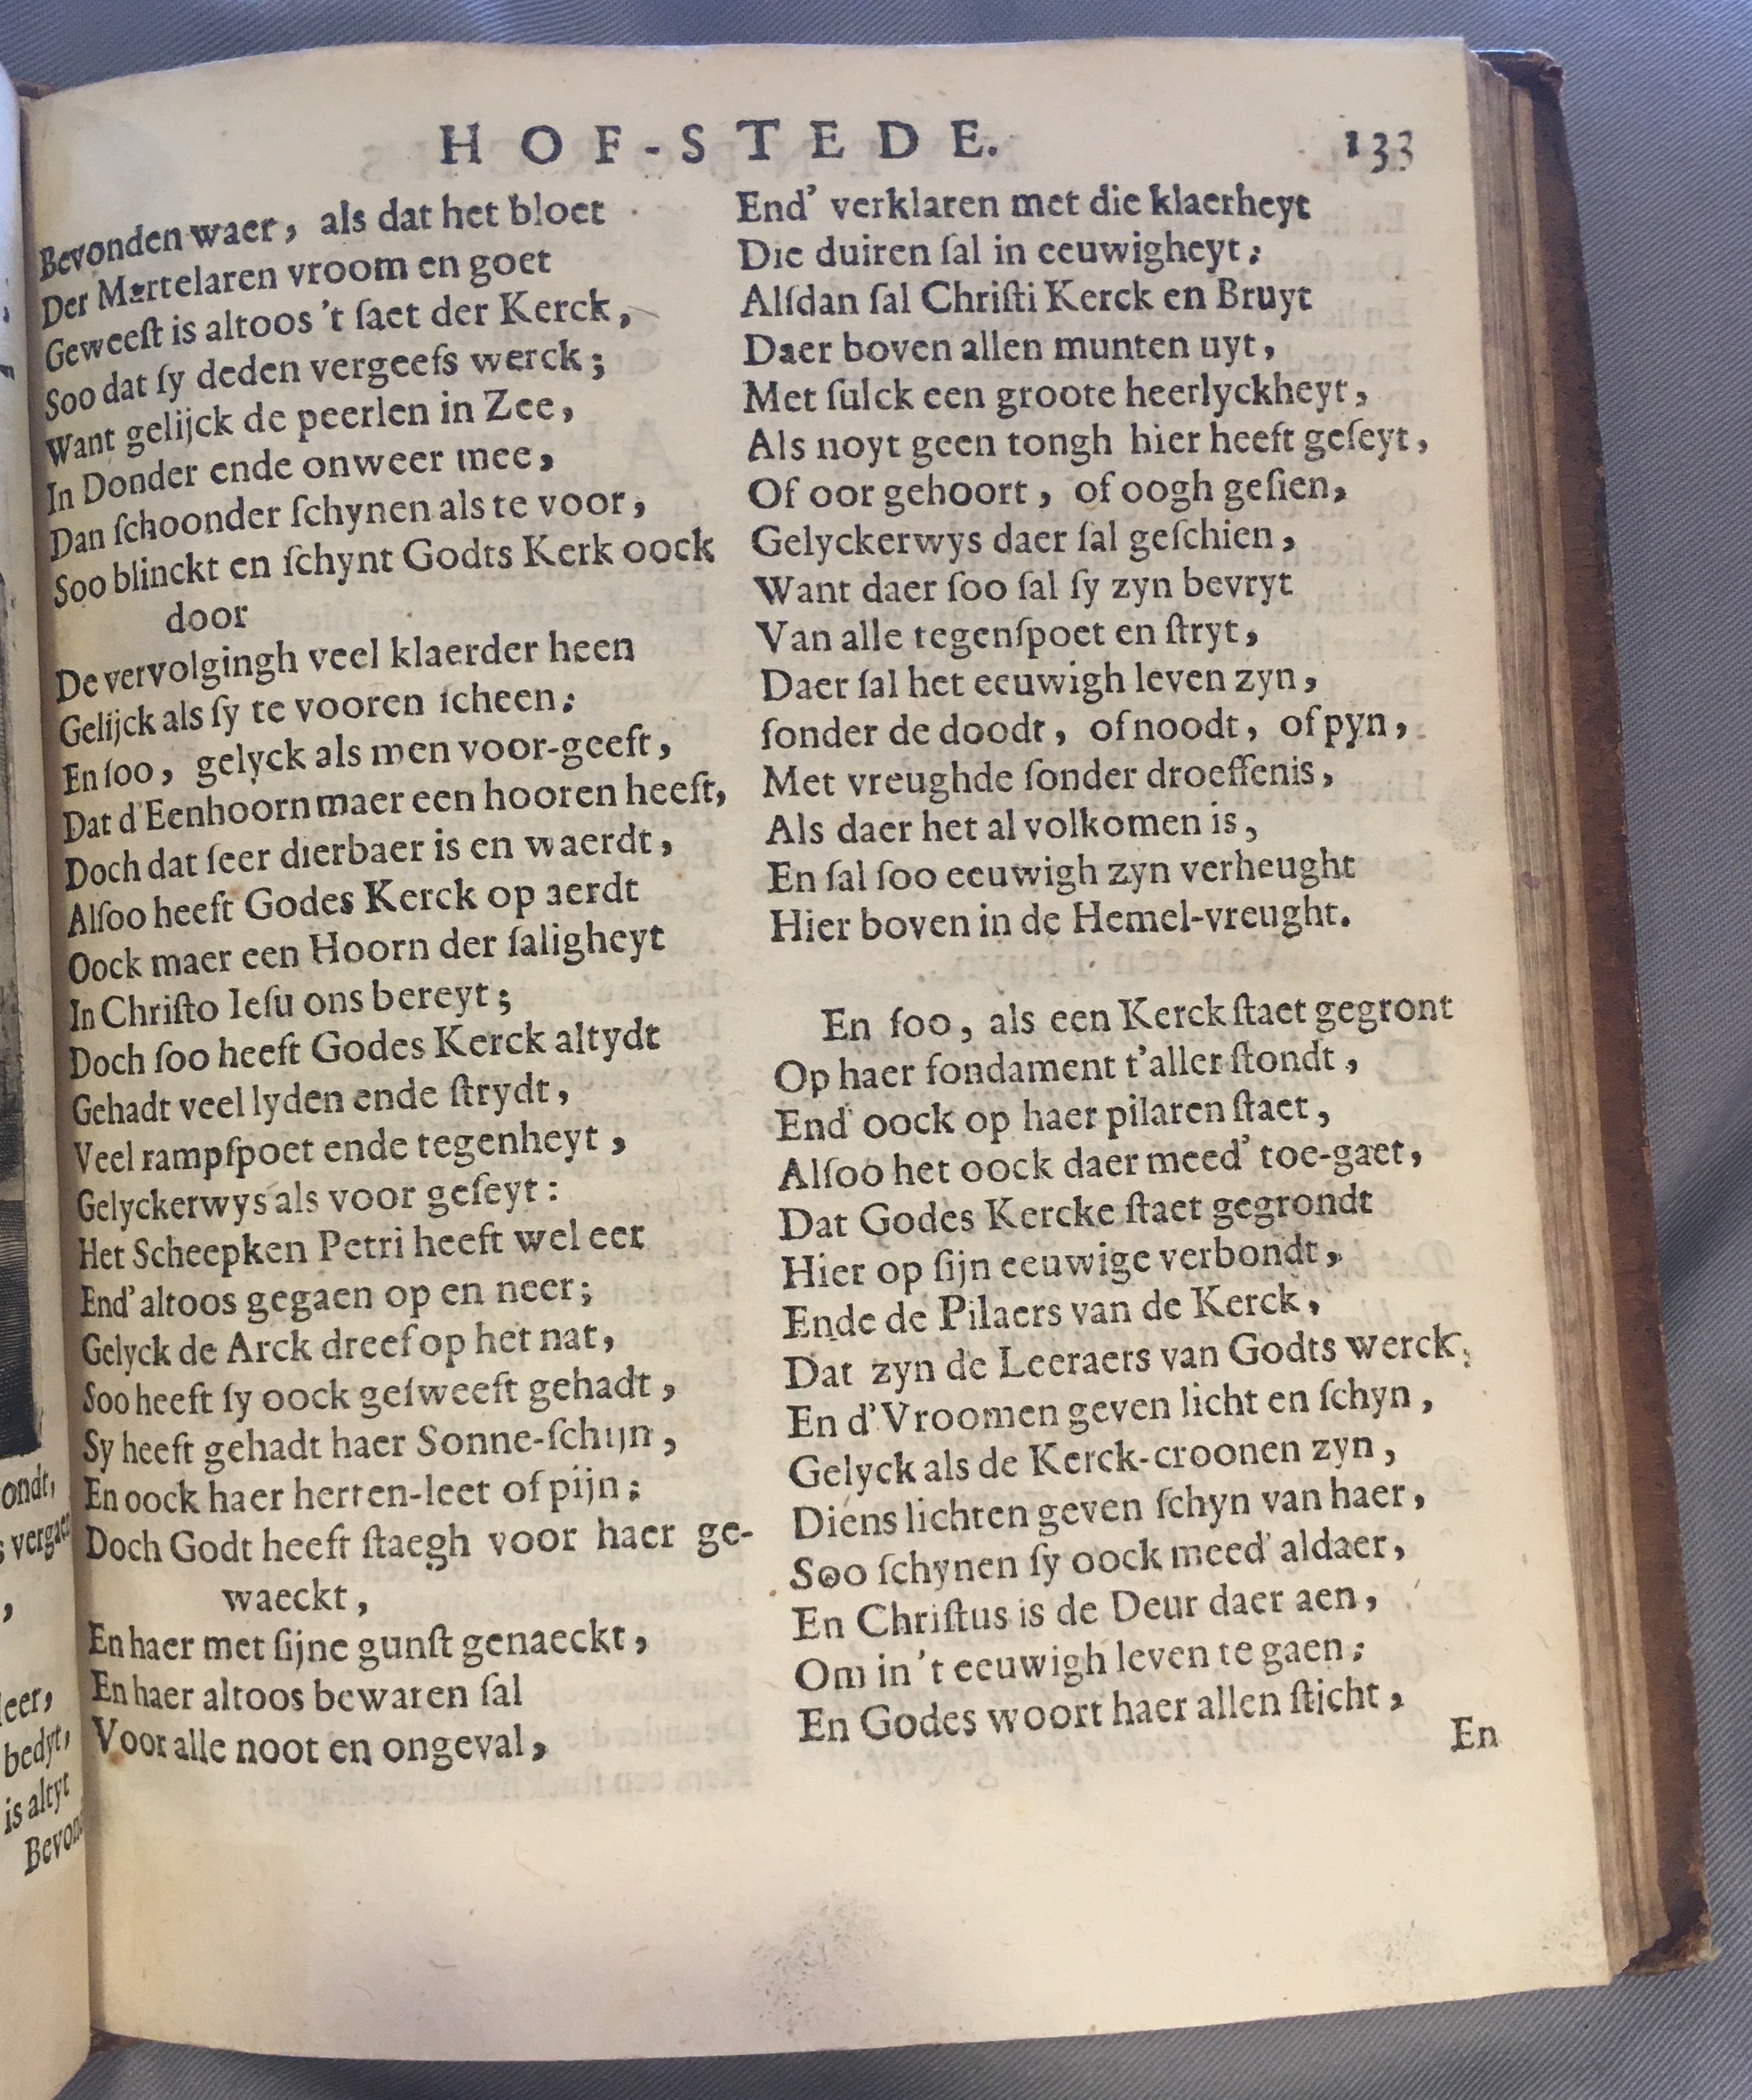 HOF-STEDE. 133
Bevonden waer, als dat het bloet
Der Martelaren vroom en goet
Geweeſt is altoos 't ſaet der Kerck,
Soo dat ſy deden vergeefs werck;
Want gelijck de peerlen in Zee,
In Donder ende onweer mee,
Dan ſchoonder ſchynen als te voor,
Soo blinckt en ſchynt Godts Kerk oock
door
De vervolgingh veel klaerder heen
Gelijck als ſy te vooren ſcheen;
En ſoo, gelyck als men voor-geeft,
Dat d'Eenhoorn maer een hooren heeft,
Doch dat ſeer dierbaer is en waerdt,
Alſoo heeft Godes Kerck op aerdt
Oock maer een Hoorn der ſaligheyt
In Chriſto Ieſu ons bereyt;
Doch ſoo heeft Godes Kerck altydt
Gehadt veel lyden ende ſtrydt,
Veel rampſpoet ende tegenheyt,
Gelyckerwys als voor geſeyt:
Het Scheepken Petri heeft wel eer
End' altoos gegaen op en neer;
Gelyck de Arck dreef op het nat,
Soo heeft ſy oock geſweeft gehadt,
Sy heeft gehadt haer Sonne-ſchijn,
En oock haer herten-leet of pijn;
Doch Godt heeft ſtaegh voor haer ge-
waeckt,
En haer met ſijne gunſt genaeckt,
En haer altoos bewaren ſal
Voor alle noot en ongeval,
End' verklaren met die klaerheyt
Die duiren ſal in eeuwigheyt;
Alſdan ſal Chriſti Kerck en Bruyt
Daer boven allen munten uyt,
Met ſulck een groote heerlyckheyt,
Als noyt geen tongh hier heeft geſeyt,
Of oor gehoort, of oogh geſien,
Gelyckerwys daer ſal geſchien,
Want daer ſoo ſal ſy zyn bevryt
Van alle tegenſpoet en ſtryt,
Daer ſal het eeuwigh leven zyn,
ſonder de doodt, of noodt, of pyn,
Met vreughde ſonder droeffenis,
Als daer het al volkomen is,
En ſal ſoo eeuwigh zyn verheught
Hier boven in de Hemel-vreught.
En ſoo, als een Kerck ſtaet gegront
Op haer fondament t'aller ſtondt,
End' oock op haer pilaren ſtaet,
Alſoo het oock daer meed' toe-gaet,
Dat Godes Kercke ſtaet gegrondt
Hier op ſijn eeuwige verbondt,
Ende de Pilaers van de Kerck,
Dat zyn de Leeraers van Godts werck,
En d'Vroomen geven licht en ſchyn,
Gelyck als de Kerck-croonen zyn,
Diens lichten geven ſchyn van haer,
Soo ſchynen ſy oock meed' aldaer,
En Chriſtus is de Deur daer aen,
Om in 't eeuwigh leven te gaen;
En Godes woort haer allen ſticht,
En